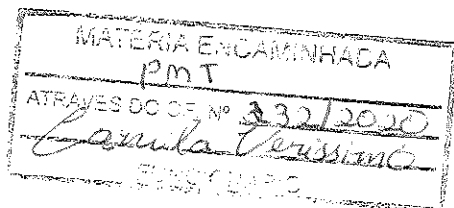 MATERIA ENCAMINHADA
PMT
ATRAVES DO OF. Nº 332/2020
Camila Verissimo
FUNCIONARIO